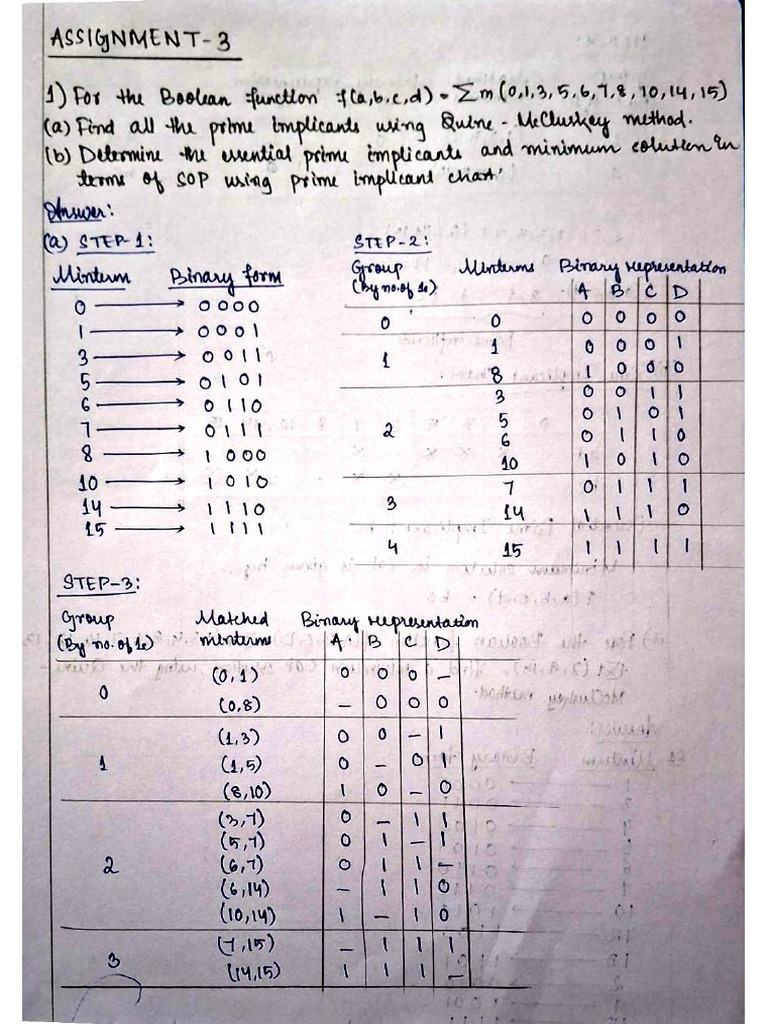 ASSIGNMENT-3
1) For the Boolean function f(a,b,c,d) = Σm (0,1,3,5,6,7,8,10,14,15)
(a) Find all the prime implicants using Quine-McCluskey method.
(b) Determine the essential prime implicants and minimum solution in
terms of SOP using prime implicant chart.
Answer:
(a) STEP-1:
Minterm Binary form
0 → 0000
1 → 0001
3 → 0011
5 → 0101
6 → 0110
7 → 0111
8 → 1000
10 → 1010
14 → 1110
15 → 1111
STEP-2:
Group Minterms Binary representation
(By no. of 1s) A B C D
0 0 0 0 0 0
1 1 0 0 0 1
8 1 0 0 0
3 0 0 1 1
2 5 0 1 0 1
6 0 1 1 0
10 1 0 1 0
3 7 0 1 1 1
14 1 1 1 0
4 15 1 1 1 1
STEP-3:
Group Matched Binary representation
(By no. of 1s) minterms A B C D
0 (0,1) 0 0 0 –
(0,8) – 0 0 0
(1,3) 0 0 – 1
1 (1,5) 0 – 0 1
(8,10) 1 0 – 0
(3,7) 0 – 1 1
(5,7) 0 1 – 1
2 (6,7) 0 1 1 –
(6,14) – 1 1 0
(10,14) 1 – 1 0
3 (7,15) – 1 1 1
(14,15) 1 1 1 –